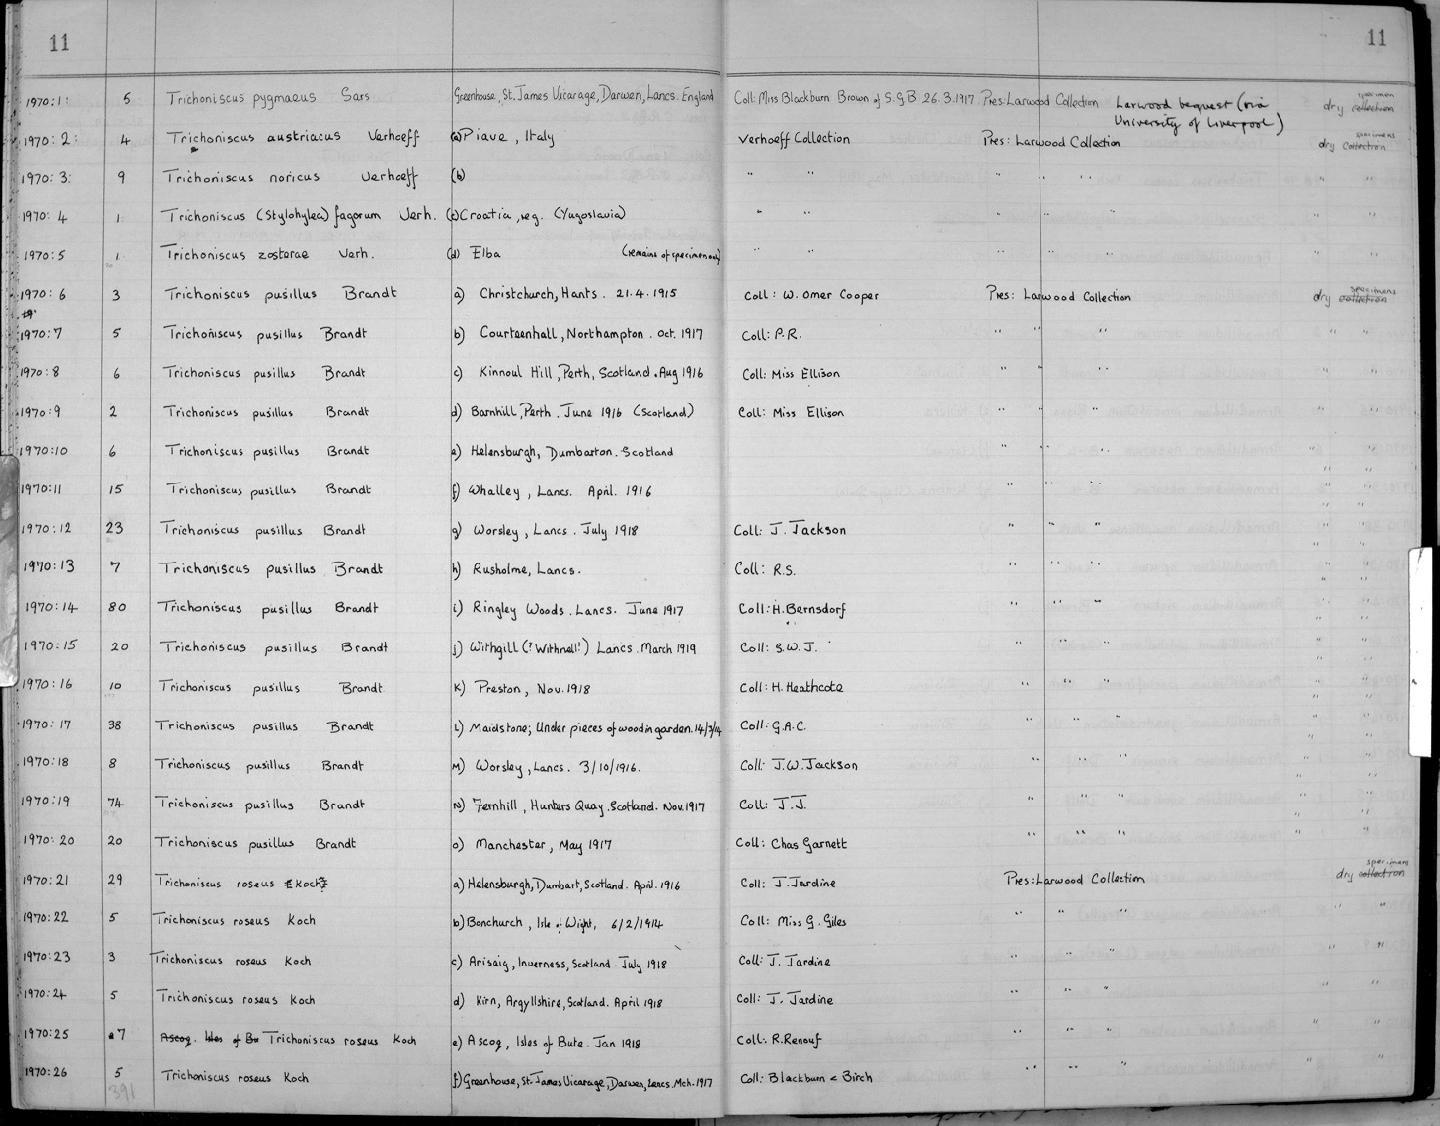 11 11
1970:1: 5 Trichoniscus pygmaeus Sars Greenhouse, St. James Vicarage, Darwen, Lancs. England Coll: Miss Blackburn Brown of S.G.B 26.3.1917 Pres: Larwood Collection Larwood bequest (via University of Liverpool) dry collection specimen
1970: 2: 4 Trichoniscus austriacus Verhoeff (a) Piave, Italy Verhoeff Collection Pres: Larwood Collection dry collection specimens
1970: 3: 9 Trichoniscus noricus Verhoeff (b) " " " " " " " "
1970: 4 1 Trichoniscus (Stylohylea) fagorum Verh. (c) Croatia, reg. (Yugoslavia) " " " " " " "
1970:5 1 Trichoniscus zosterae Verh. (d) Elba (remains of specimen only) " " " " " " "
1970: 6 3 Trichoniscus pusillus Brandt a) Christchurch, Hants. 21.4.1915 Coll: W. Omer Cooper Pres: Larwood Collection dry collection specimens
1970:7 5 Trichoniscus pusillus Brandt b) Courteenhall, Northampton. Oct. 1917 Coll: P.R. " " " " "
1970:8 6 Trichoniscus pusillus Brandt c) Kinnoul Hill, Perth, Scotland. Aug 1916 Coll: Miss Ellison " " " " "
1970:9 2 Trichoniscus pusillus Brandt d) Barnhill, Perth. June 1916 (Scotland) Coll: Miss Ellison " " " " "
1970:10 6 Trichoniscus pusillus Brandt e) Helensburgh, Dumbarton. Scotland " " " " "
1970:11 15 Trichoniscus pusillus Brandt f) Whalley, Lancs. April. 1916 " " " " "
1970:12 23 Trichoniscus pusillus Brandt g) Worsley, Lancs. July 1918 Coll: J. Jackson " " " " "
1970:13 7 Trichoniscus pusillus Brandt h) Rusholme, Lancs. Coll: R.S. " " " " "
1970:14 80 Trichoniscus pusillus Brandt i) Ringley Woods. Lancs. June 1917 Coll: H. Bernsdorf " " " " "
1970:15 20 Trichoniscus pusillus Brandt j) Withgill (?'Withnell') Lancs. March 1919 Coll: S.W.J. " " " " "
1970:16 10 Trichoniscus pusillus Brandt k) Preston, Nov. 1918 Coll: H. Heathcote " " " " "
1970:17 38 Trichoniscus pusillus Brandt l) Maidstone; Under pieces of wood in garden. 14/3/14 Coll: G.A.C. " " " " "
1970:18 8 Trichoniscus pusillus Brandt M) Worsley, Lancs. 3/10/1916. Coll: J.W. Jackson " " " " "
1970:19 74 Trichoniscus pusillus Brandt N) Fernhill, Hunters Quay. Scotland. Nov. 1917 Coll: J.J. " " " " "
1970:20 20 Trichoniscus pusillus Brandt o) Manchester, May 1917 Coll: Chas Garnett " " " " "
1970:21 29 Trichoniscus roseus Koch a) Helensburgh, Dumbart, Scotland. April. 1916 Coll: J. Jardine Pres: Larwood Collection dry collection specimens
1970:22 5 Trichoniscus roseus Koch b) Bonchurch, Isle of Wight, 6/2/1914 Coll: Miss G. Giles " " " " "
1970:23 3 Trichoniscus roseus Koch c) Arisaig, Inverness, Scotland July 1918 Coll: J. Jardine " " " " "
1970:24 5 Trichoniscus roseus Koch d) Kirn, Argyllshire, Scotland. April 1918 Coll: J. Jardine " " " " "
1970:25 7 Ascog. Isles of Bu Trichoniscus roseus Koch e) Ascog, Isles of Bute. Jan 1918 Coll: R. Renouf " " " " "
1970:26 5 Trichoniscus roseus Koch f) Greenhouse, St. James Vicarage, Darwen, Lancs. Mch. 1917 Coll: Blackburn & Birch " " " "
391